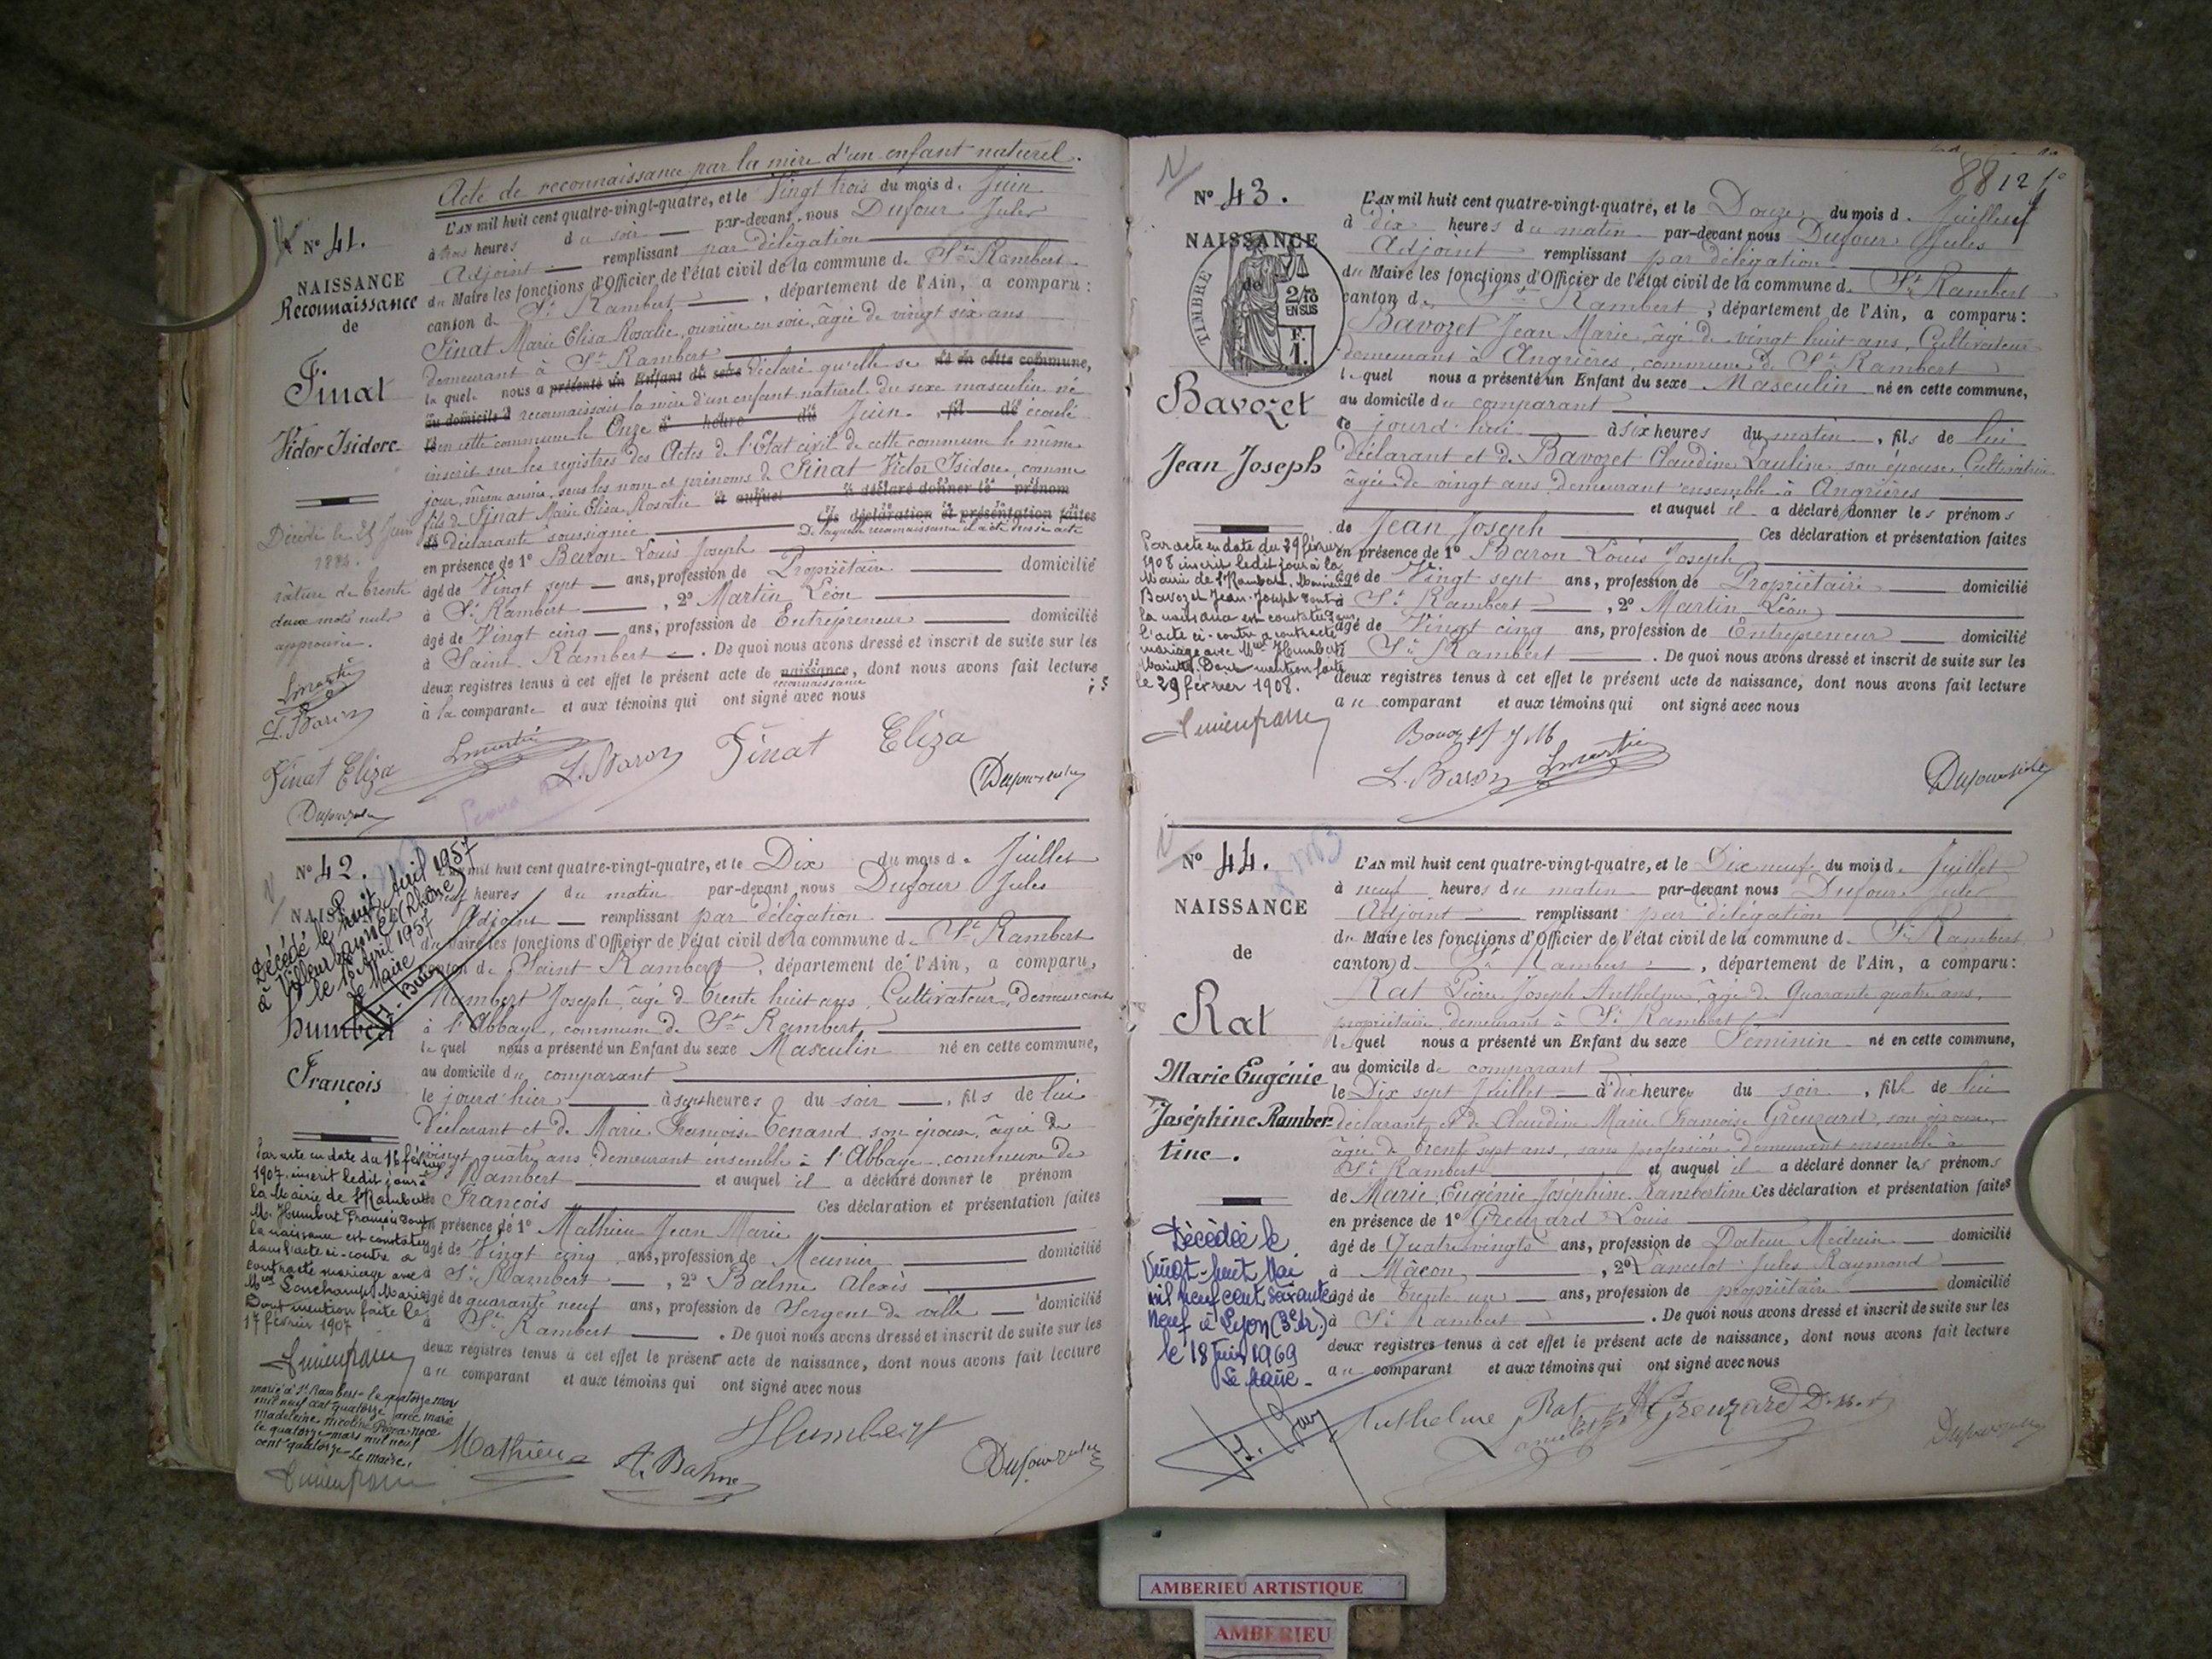 Acte de reconnaissance par la mère d'un enfant naturel.
N° 41.
NAISSANCE
Reconnaissance
de
Finat
Victor Isidore
Décédé le 25 Juin
1884.
rature de trente
deux mots nuls
approuvée.
LMartin
L. Baron
Finat Eliza
L'AN mil huit cent quatre-vingt-quatre, et le Vingt trois du mois d. Juin
à trois heures du soir par-devant nous Dufour Jules
Adjoint remplissant par délégation
du Maire les fonctions d'Officier de l'état civil de la commune d. St Rambert
canton d. St Rambert, département de l'Ain, a comparu:
Finat Marie Elisa Rosalie, ouvrière en soie, âgée de vingt six ans
demeurant à St Rambert
laquelle nous a présenté un Enfant du sexe déclaré qu'elle se né en cette commune,
au domicile d reconnaissait la mère d'un enfant naturel du sexe masculin né
en cette commune le Onze à heure du Juin, fil de écoulé
inscrit sur les registres des Actes de l'Etat civil de cette commune le même
jour, même année, sous les nom et prénoms de Finat Victor Isidore, comme
fils de Finat Marie Elisa Rosalie et auquel a déclaré donner le prénom
de déclarante soussignée Ces déclaration et présentation faites
De laquelle reconnaissance il a été dressé acte
en présence de 1° Baron Louis Joseph
âgé de Vingt sept ans, profession de Propriétaire domicilié
à St Rambert, 2° Martin Léon
âgé de Vingt cinq ans, profession de Entrepreneur domicilié
à Saint Rambert. De quoi nous avons dressé et inscrit de suite sur les
deux registres tenus à cet effet le présent acte de naissance, dont nous avons fait lecture
reconnaissance
à la comparante et aux témoins qui ont signé avec nous
LMartin L. Baron Finat Eliza
N° 42.
NAISSANCE
Décédé le huit Avril 1957
à Villeurbanne (Rhône)
le 16 Avril 1957
Le Maire
Humbert
François
Par acte en date du 16 février
1907 inscrit ledit jour à
la Mairie de St Rambert
M. Humbert François dont
la naissance est constatée
dans l'acte ci-contre a
contracté mariage avec
Melle Lonchamp Marie
Dont mention faite le
17 février 1907
marié à St Rambert le quatorze mars
mil neuf cent quatorze avec Marie
Madeleine Nicoline
le quatorze mars mil neuf
cent quatorze Le Maire,
L'AN mil huit cent quatre-vingt-quatre, et le Dix du mois d. Juillet
heures du matin par-devant nous Dufour Jules
Adjoint remplissant par délégation
du Maire les fonctions d'Officier de l'état civil de la commune d. St Rambert
canton d. Saint Rambert, département de l'Ain, a comparu,
Humbert Joseph, âgé de trente huit ans, Cultivateur, demeurant
à l'Abbaye, commune de St Rambert,
lequel nous a présenté un Enfant du sexe Masculin né en cette commune,
au domicile du comparant
le jourd'hier à sept heures du soir, fils de lui
déclarant et de Marie Françoise Tenand, son épouse, âgée de
vingt quatre ans demeurant ensemble à l'Abbaye commune de
St Rambert et auquel il a déclaré donner le prénom
de François Ces déclaration et présentation faites
en présence de 1° Mathieu Jean Marie
âgé de Vingt cinq ans, profession de Meunier domicilié
à St Rambert, 2° Balme Alexis
âgé de quarante neuf ans, profession de Sergent de ville domicilié
à St Rambert. De quoi nous avons dressé et inscrit de suite sur les
deux registres tenus à cet effet le présent acte de naissance, dont nous avons fait lecture
au comparant et aux témoins qui ont signé avec nous
Humbert
Mathieu A. Balme
88 12
N° 43.
NAISSANCE
de
TIMBRE
2/10
EN SUS
F.
1.
Bavozet
Jean Joseph
Par acte en date du 29 février
1908 inscrit ledit jour à la
Mairie de St Rambert, Monsieur
Bavozet Jean Joseph dont
la naissance est constatée dans
l'acte ci-contre a contracté
mariage avec Melle Humbert
Mariette. Dont mention faite
le 29 février 1908.
L'AN mil huit cent quatre-vingt-quatre, et le Douze du mois d. Juillet
à dix heures du matin par-devant nous Dufour Jules
Adjoint remplissant par délégation
du Maire les fonctions d'Officier de l'état civil de la commune d. St Rambert
canton d. St Rambert, département de l'Ain, a comparu:
Bavozet Jean Marie, âgé de vingt huit ans, Cultivateur
demeurant à Angrières, commune de St Rambert
lequel nous a présenté un Enfant du sexe Masculin né en cette commune,
au domicile du comparant
ce jourd'hui à six heures du matin, fils de lui
déclarant et de Bavozet Claudine Pauline son épouse, Cultivatrice
âgée de vingt ans demeurant ensemble à Angrières
et auquel il a déclaré donner les prénoms
de Jean Joseph Ces déclaration et présentation faites
en présence de 1° Baron Louis Joseph
âgé de Vingt sept ans, profession de Propriétaire domicilié
à St Rambert, 2° Martin Léon
âgé de Vingt cinq ans, profession de Entrepreneur domicilié
à St Rambert. De quoi nous avons dressé et inscrit de suite sur les
deux registres tenus à cet effet le présent acte de naissance, dont nous avons fait lecture
au comparant et aux témoins qui ont signé avec nous
Bavozet J M
L. Baron LMartin
N° 44.
NAISSANCE
de
Rat
Marie Eugénie
Joséphine Ramber-
tine.
Décédée le
vingt-huit Mai
mil neuf cent soixante
neuf à Lyon (3e Ar.)
le 18 Juin 1969
Le Maire
L'AN mil huit cent quatre-vingt-quatre, et le Dix neuf du mois d. Juillet
à neuf heures du matin par-devant nous Dufour Jules
Adjoint remplissant par délégation
du Maire les fonctions d'Officier de l'état civil de la commune d. St Rambert
canton d. St Rambert, département de l'Ain, a comparu:
Rat Pierre Joseph Anthelme, âgé de Quarante quatre ans,
propriétaire, demeurant à St Rambert
lequel nous a présenté un Enfant du sexe Féminin né en cette commune,
au domicile du comparant
le Dix sept Juillet à dix heures du soir, fille de lui
déclarant, et de Claudine Marie Françoise Greuzard, son épouse,
âgée de trente sept ans, sans profession, demeurant ensemble à
St Rambert et auquel il a déclaré donner les prénoms
de Marie Eugénie Joséphine Rambertine Ces déclaration et présentation faites
en présence de 1° Greuzard Louis
âgé de Quatre vingts ans, profession de Docteur Médecin domicilié
à Mâcon, 2° Lancelot Jules Raymond
âgé de trente un ans, profession de propriétaire domicilié
à St Rambert. De quoi nous avons dressé et inscrit de suite sur les
deux registres tenus à cet effet le présent acte de naissance, dont nous avons fait lecture
au comparant et aux témoins qui ont signé avec nous
Anthelme Rat Greuzard
AMBERIEU ARTISTIQUE
AMBERIEU